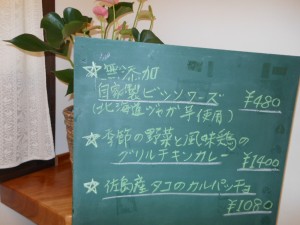 ☆無添加
自家製ビシソワーズ
(北海道ジャガ芋使用)
¥480
☆季節の野菜と風味鶏の
グリルチキンカレー
¥1400
☆佐島産タコのカルパッチョ
¥1080